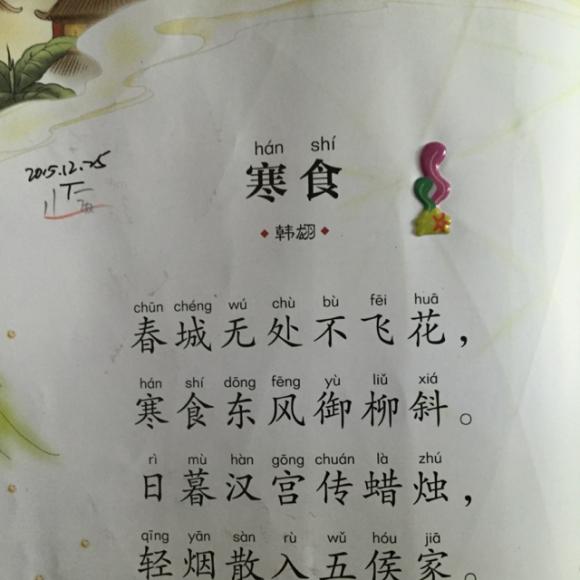 2015.12.25
hán shí
寒食
韩翃
chūn chéng wú chù bù fēi huā
春城无处不飞花，
hán shí dōng fēng yù liǔ xiá
寒食东风御柳斜。
rì mù hàn gōng chuán là zhú
日暮汉宫传蜡烛，
qīng yān sàn rù wǔ hóu jiā
轻烟散入五侯家。